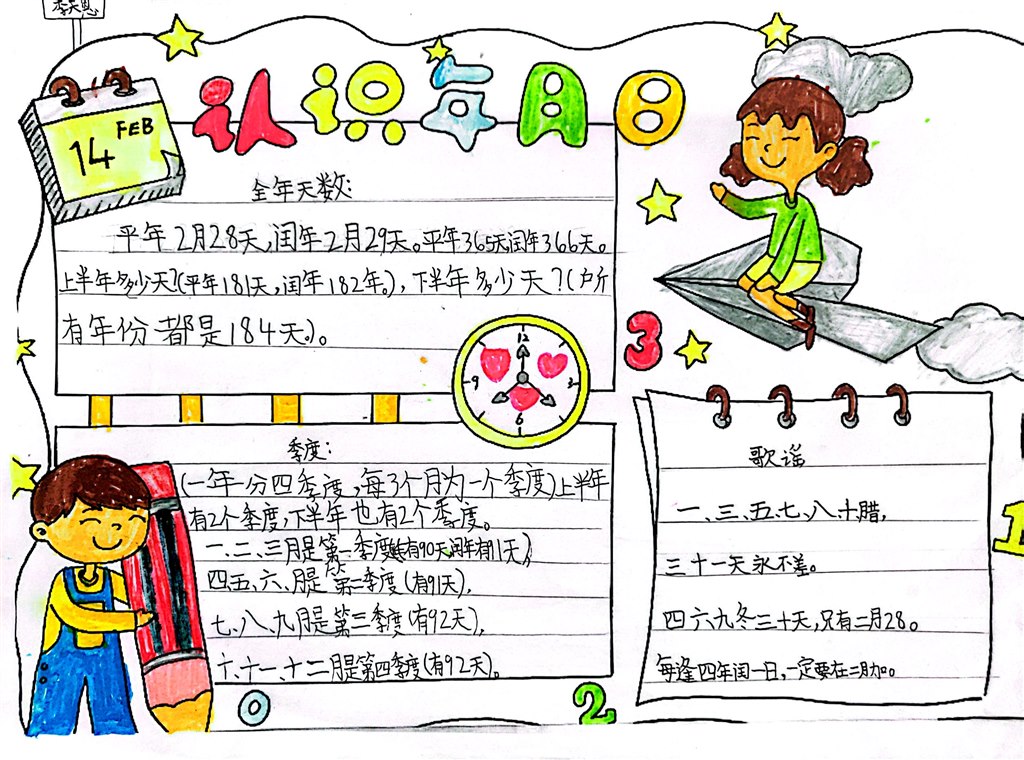 李天恩
认识年月日
FEB
14
全年天数:
平年2月28天,闰年2月29天。平年365天闰年366天。
上半年多少天?(平年181天,闰年182年。),下半年多少天?(所
有年份都是184天)。
12
3
6
9
3
季度:
(一年分四季度,每3个月为一个季度)上半年
有2个季度,下半年也有2个季度。
一、二、三月是第一季度(有90天闰年有91天),
四、五、六、月是第二季度(有91天),
七、八、九月是第三季度(有92天),
十、十一、十二月是第四季度(有92天)。
歌谣
一、三、五、七、八、十腊,
三十一天永不差。
四六九冬三十天,只有二月28。
每逢四年闰一日,一定要在二月加。
1
0
2